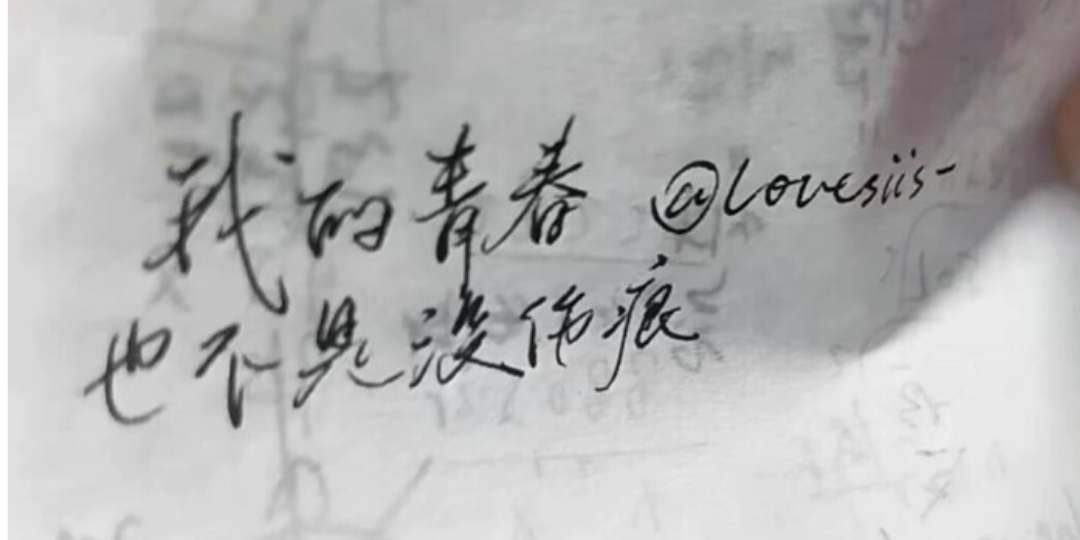 我的青春 @Lovesiis-
也不是没伤痕